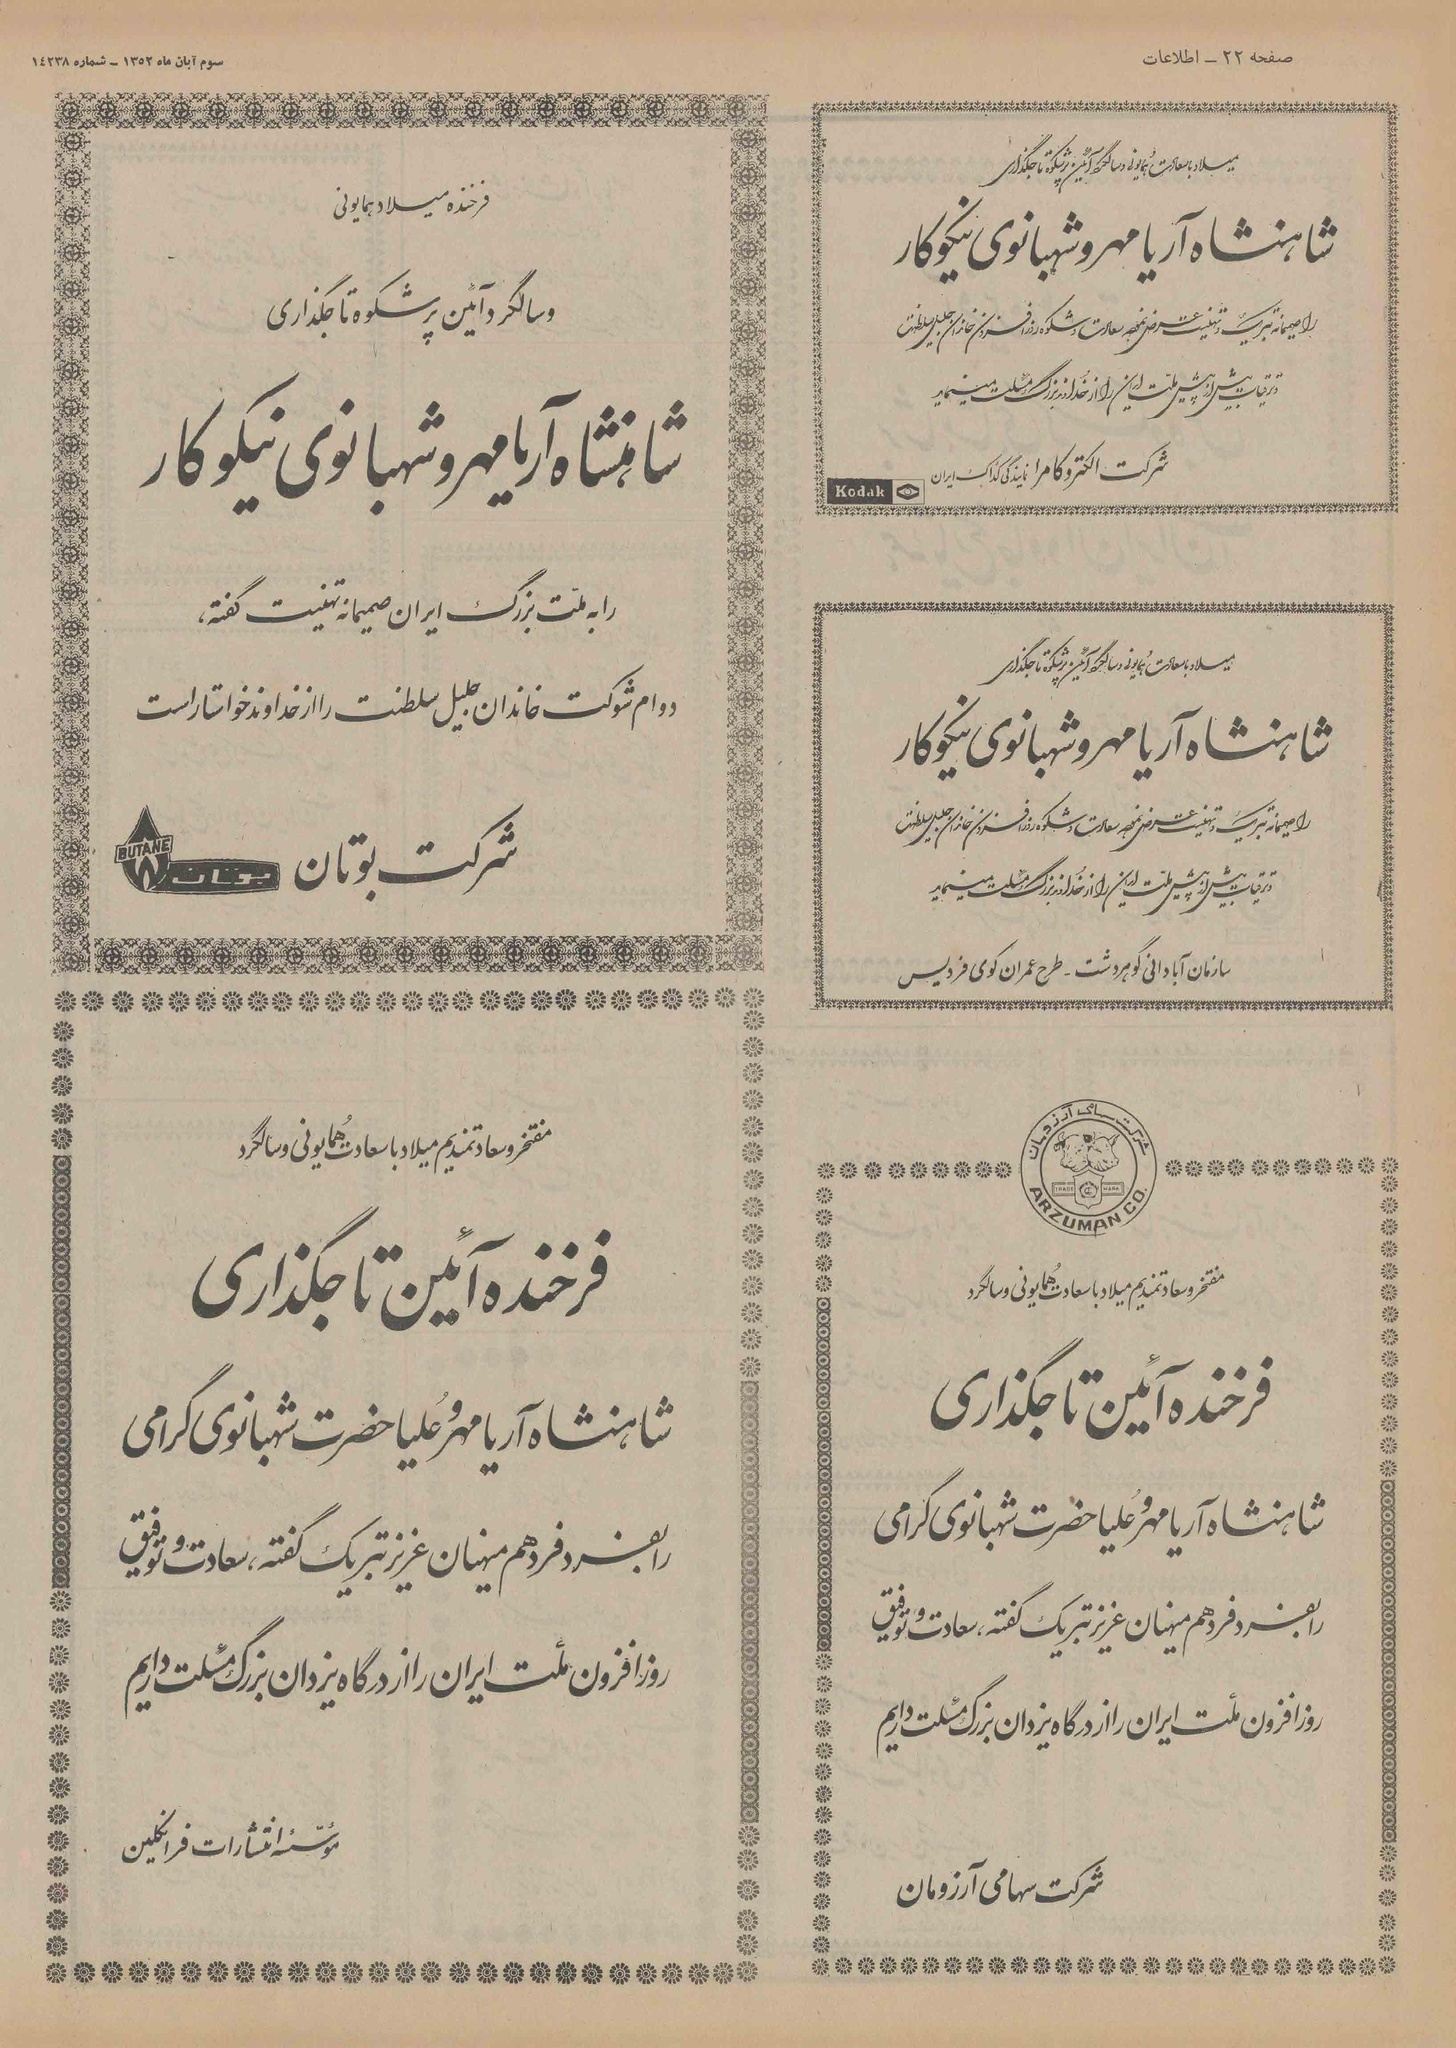 صفحه ۲۲ ـ اطلاعات
سوم آبان ماه ۱۳۵۲ ـ شماره ۱٤۲۳۸
میلاد با سعادت همایونی و سالگرد آئین پرشکوه تاجگذاری
شاهنشاه آریامهر و شهبانوی نیکوکار
را صمیمانه تبریک و تهنیت عرض نموده سعادت و شکوه روزافزون خاندان جلیل سلطنت
و ترقیات بیش از پیش ملت ایران را از خداوند بزرگ مسئلت مینماید
شرکت الکتروکامرا نمایندگی کداک ایران
Kodak
میلاد با سعادت همایونی و سالگرد آئین پرشکوه تاجگذاری
شاهنشاه آریامهر و شهبانوی نیکوکار
را صمیمانه تبریک و تهنیت عرض نموده سعادت و شکوه روزافزون خاندان جلیل سلطنت
و ترقیات بیش از پیش ملت ایران را از خداوند بزرگ مسئلت مینماید
سازمان آبادانی گوهردشت ـ طرح عمران کوی فردیس
شرکت سهامی آرزومان
TRADE MARK
ARZUMAN CO.
مفتخر و سعادتمندیم میلاد با سعادت همایونی و سالگرد
فرخنده آئین تاجگذاری
شاهنشاه آریامهر و علیاحضرت شهبانوی گرامی
را بفرد فرد هم میهنان عزیز تبریک گفته، سعادت و توفیق
روزافزون ملت ایران را از درگاه یزدان بزرگ مسئلت داریم
شرکت سهامی آرزومان
فرخنده میلاد همایونی
و سالگرد آئین پرشکوه تاجگذاری
شاهنشاه آریامهر و شهبانوی نیکوکار
را به ملت بزرگ ایران صمیمانه تهنیت گفته،
دوام شوکت خاندان جلیل سلطنت را از خداوند خواستار است
شرکت بوتان
بوتان
BUTANE
مفتخر و سعادتمندیم میلاد با سعادت همایونی و سالگرد
فرخنده آئین تاجگذاری
شاهنشاه آریامهر و علیاحضرت شهبانوی گرامی
را بفرد فرد هم میهنان عزیز تبریک گفته، سعادت و توفیق
روزافزون ملت ایران را از درگاه یزدان بزرگ مسئلت داریم
مؤسسه انتشارات فرانکلین